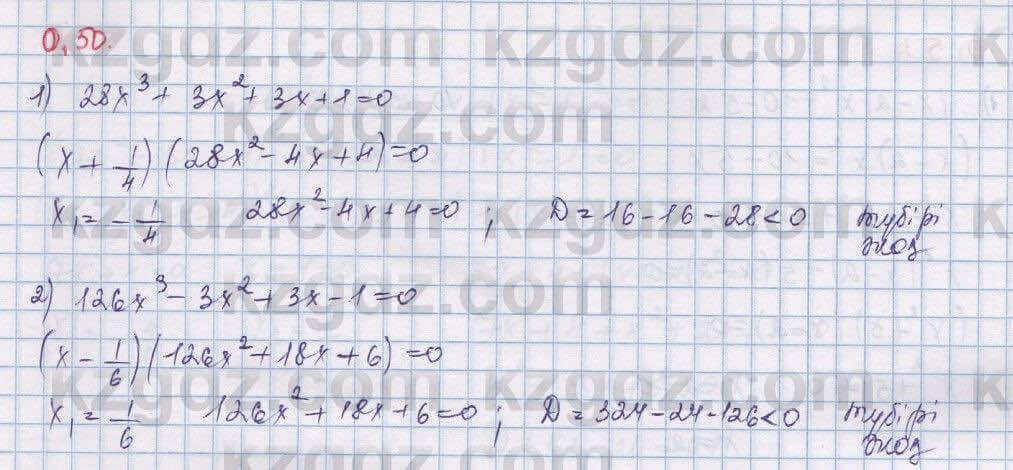 0.50.
1) 28x³ + 3x² + 3x + 1 = 0
(x + 1/4)(28x² - 4x + 4) = 0
x₁ = -1/4 28x² - 4x + 4 = 0 ; D = 16 - 16 - 28 < 0 түбірі жоқ
2) 126x³ - 3x² + 3x - 1 = 0
(x - 1/6)(126x² + 18x + 6) = 0
x₁ = 1/6 126x² + 18x + 6 = 0 ; D = 324 - 24 - 126 < 0 түбірі жоқ